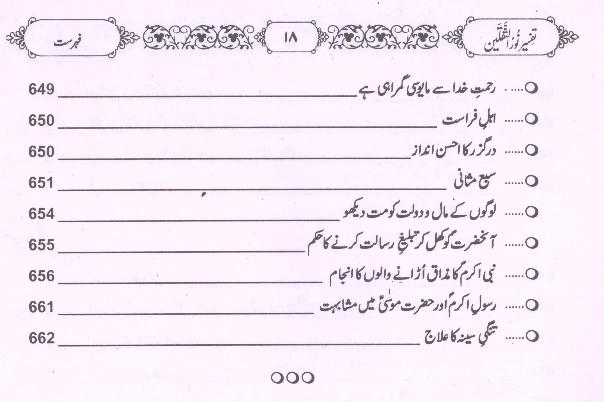 تفسیر نور الثقلین ۱۸ فہرست
رحمتِ خدا سے مایوسی گمراہی ہے 649
اہلِ فراست 650
درگزر کا احسن انداز 650
سبع مثانی 651
لوگوں کے مال و دولت کو مت دیکھو 654
آنحضرتؐ کو کھل کر تبلیغِ رسالت کرنے کا حکم 655
نبی اکرمؐ کا مذاق اڑانے والوں کا انجام 656
رسولِ اکرمؐ اور حضرت موسٰیؑ میں مشابہت 661
تنگیِ سینہ کا علاج 662